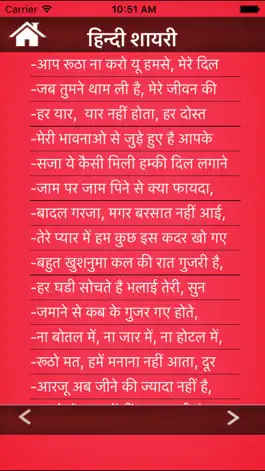 Carrier 10:51 AM
हिन्दी शायरी
-आप रूठा ना करो यू हमसे, मेरे दिल
-जब तुमने थाम ली है, मेरे जीवन की
-हर यार,  यार नहीं होता, हर दोस्त
-मेरी भावनाओ से जुड़े हुए है आपके
-सजा ये कैसी मिली हम्की दिल लगाने
-जाम पर जाम पिने से क्या फायदा,
-बादल गरजा, मगर बरसात नहीं आई,
-तेरे प्यार में हम कुछ इस कदर खो गए
-बहुत खुशनुमा कल की रात गुजरी है,
-हर घडी सोचते है भलाई तेरी, सुन
-जमाने से कब के गुजर गए होते,
-ना बोतल में, ना जार में, ना होटल में,
-रूठो मत, हमें मनाना नहीं आता, दूर
-आरजू अब जीने की ज्यादा नहीं है,